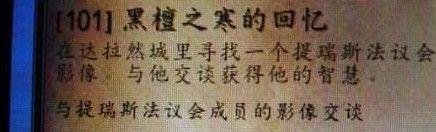 [101] 黑檀之寒的回忆
在达拉然城里寻找一个提瑞斯法议会
影像。与他交谈获得他的智慧。
与提瑞斯法议会成员的影像交谈